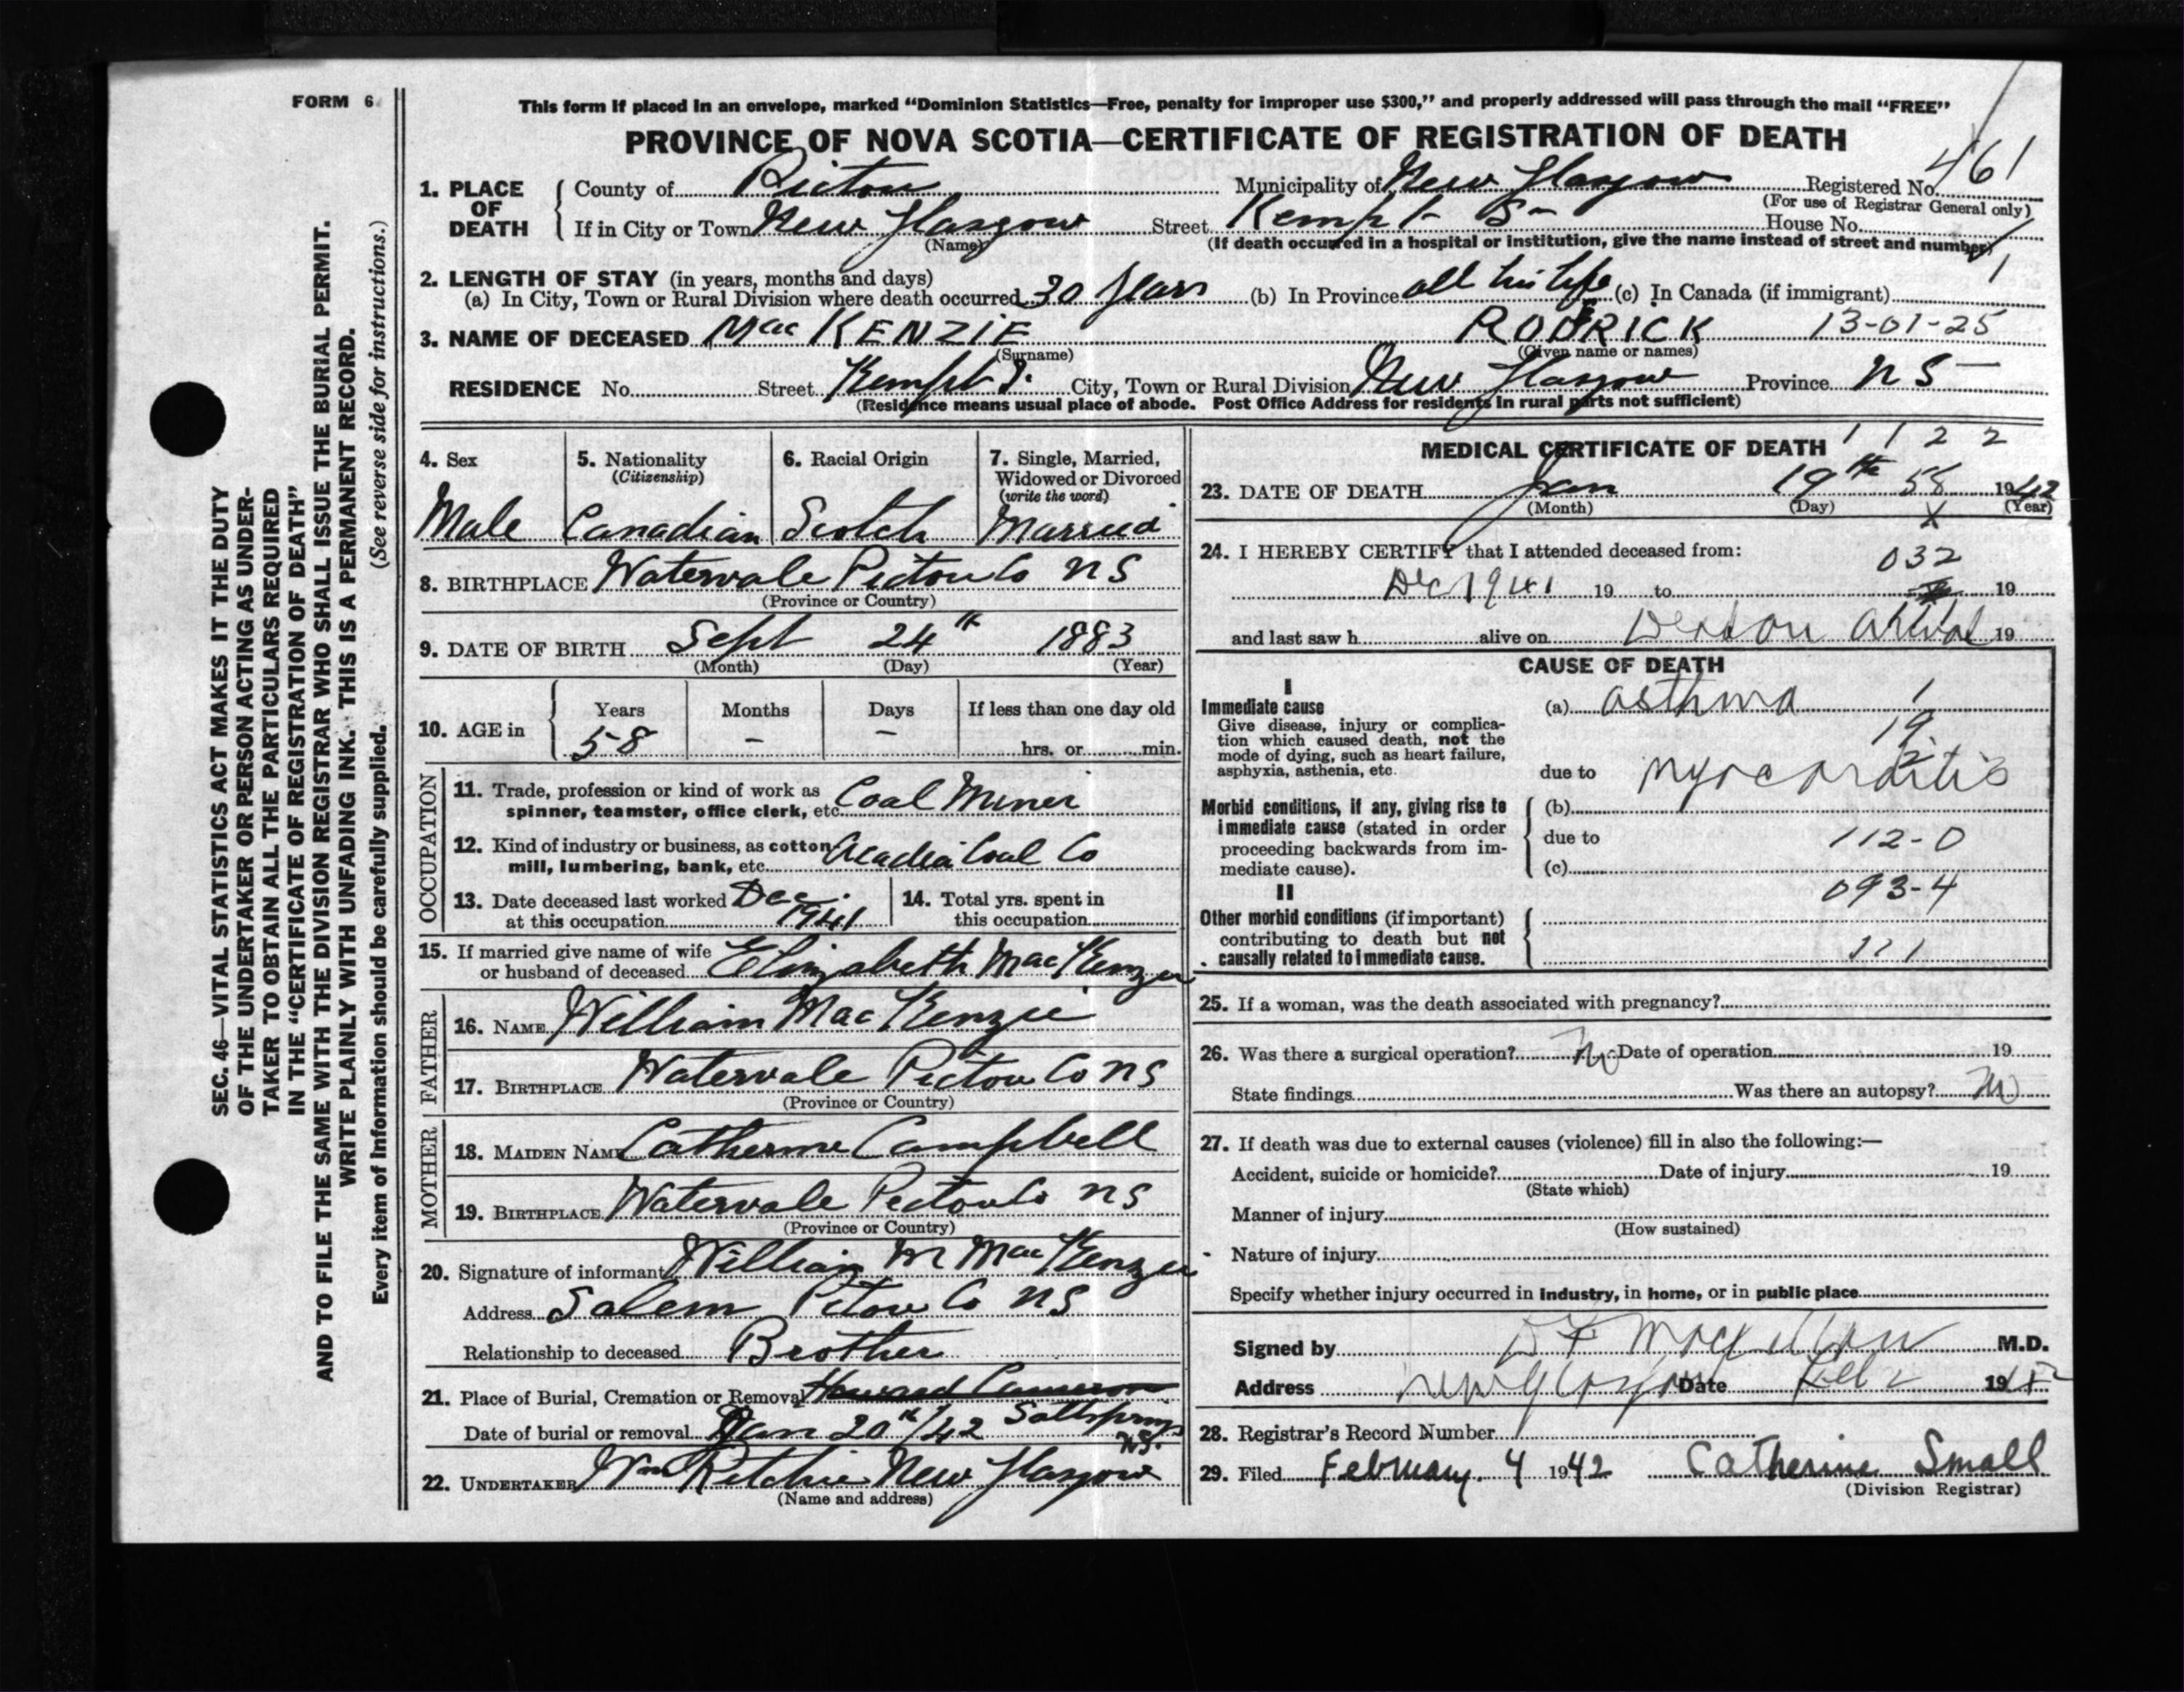 FORM 6
This form if placed in an envelope, marked “Dominion Statistics—Free, penalty for improper use $300,” and properly addressed will pass through the mail “FREE”
PROVINCE OF NOVA SCOTIA—CERTIFICATE OF REGISTRATION OF DEATH
1. PLACE OF DEATH County of Pictou Municipality of New Glasgow Registered No. 461
(For use of Registrar General only)
If in City or Town New Glasgow Street Kempt St House No.
(Name) (If death occurred in a hospital or institution, give the name instead of street and number)
2. LENGTH OF STAY (in years, months and days)
(a) In City, Town or Rural Division where death occurred 30 years (b) In Province all his life (c) In Canada (if immigrant)
3. NAME OF DECEASED MacKENZIE RODRICK 13-01-25
(Surname) (Given name or names)
RESIDENCE No. Street Kempt St. City, Town or Rural Division New Glasgow Province NS
(Residence means usual place of abode. Post Office Address for residents in rural parts not sufficient)
4. Sex Male
5. Nationality (Citizenship) Canadian
6. Racial Origin Scotch
7. Single, Married, Widowed or Divorced (write the word) Married
8. BIRTHPLACE Watervale Pictou Co NS
(Province or Country)
9. DATE OF BIRTH Sept 24th 1883
(Month) (Day) (Year)
10. AGE in Years 58 Months - Days - If less than one day old hrs. or min.
OCCUPATION
11. Trade, profession or kind of work as spinner, teamster, office clerk, etc. Coal Miner
12. Kind of industry or business, as cotton mill, lumbering, bank, etc. Acadia Coal Co
13. Date deceased last worked at this occupation Dec. 1941
14. Total yrs. spent in this occupation
15. If married give name of wife or husband of deceased Elizabeth MacKenzie
FATHER
16. NAME William MacKenzie
17. BIRTHPLACE Watervale Pictou Co NS
(Province or Country)
MOTHER
18. MAIDEN NAME Catherine Campbell
19. BIRTHPLACE Watervale Pictou Co NS
(Province or Country)
20. Signature of informant William M MacKenzie
Address Salem Pictou Co NS
Relationship to deceased Brother
21. Place of Burial, Cremation or Removal Howard Cameron
Date of burial or removal Jan 20th/42 Saltsprings NS.
22. UNDERTAKER Wm Ritchie New Glasgow
(Name and address)
MEDICAL CERTIFICATE OF DEATH 1 1 2 2
23. DATE OF DEATH Jan 19th 58 1942
(Month) (Day) (Year)
X
24. I HEREBY CERTIFY that I attended deceased from:
032
Dec 1941 19 to 19
and last saw h alive on Dead on arrival 19
CAUSE OF DEATH
I
Immediate cause
Give disease, injury or complication which caused death, not the mode of dying, such as heart failure, asphyxia, asthenia, etc.
(a) asthma 1
19
2
due to myocarditis
Morbid conditions, if any, giving rise to immediate cause (stated in order proceeding backwards from immediate cause).
(b)
due to 112-0
(c)
093-4
II
Other morbid conditions (if important) contributing to death but not causally related to immediate cause.
111
25. If a woman, was the death associated with pregnancy?
26. Was there a surgical operation? No Date of operation 19
State findings Was there an autopsy? No
27. If death was due to external causes (violence) fill in also the following:—
Accident, suicide or homicide? Date of injury 19
(State which)
Manner of injury
(How sustained)
Nature of injury
Specify whether injury occurred in industry, in home, or in public place
Signed by M.D.
Address New Glasgow Date Feb 2 1942
28. Registrar’s Record Number
29. Filed February 4 1942 Catherine Small
(Division Registrar)
SEC. 46—VITAL STATISTICS ACT MAKES IT THE DUTY
OF THE UNDERTAKER OR PERSON ACTING AS UNDER-
TAKER TO OBTAIN ALL THE PARTICULARS REQUIRED
IN THE “CERTIFICATE OF REGISTRATION OF DEATH”
AND TO FILE THE SAME WITH THE DIVISION REGISTRAR WHO SHALL ISSUE THE BURIAL PERMIT.
WRITE PLAINLY WITH UNFADING INK. THIS IS A PERMANENT RECORD.
(See reverse side for instructions.)
Every item of information should be carefully supplied.